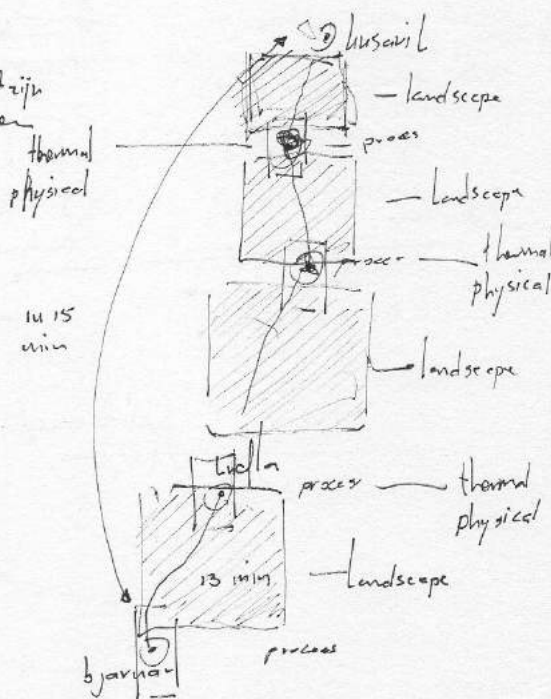 husavik
landscape
thermal
physical
proces
landscape
proces
thermal
physical
in 15
min
landscape
proces
thermal
physical
13 min
landscape
bjarnar
process